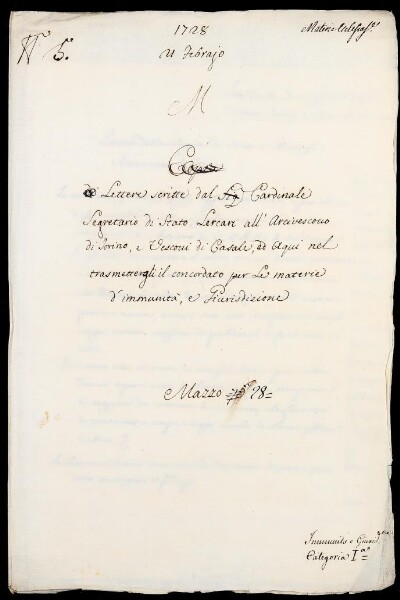 1728
Materie Ecclesiast.e
N.° 5.°
21 Febrajo
M
Copia
di Lettere scritte dal Sig. Cardinale
Segretario di Stato Lercari all' Arcivescovo
di Torino, e Vescovi di Casale, ed Aqui nel
trasmettergli il concordato per le materie
d'immunità, e Giurisdizione
Mazzo 28=
Immunità e Giurisd.zione
Categoria I.a=